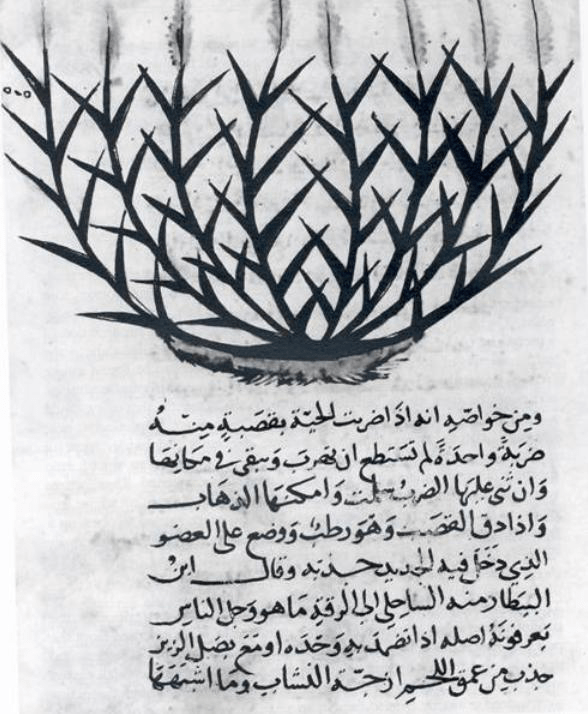 ومن خواصه انه اذا ضربت الحية بقصبة منه
ضربة واحدة لم تستطع ان تهرب وتبقى في مكانها
وان ثنى عليها الضرب سلت وامكنها الذهاب
واذا دق القصب وهو رطب ووضع على العضو
الذي دخل فيه الحديد جذبه وقال ابن
البيطار منه الساحلي الى الرقة ما هو وجل الناس
يعرفونه اصله اذا تضمد به وحده او مع بصل الزيز
جذب من عمق اللحم ازجة النشاب وما اشبهها